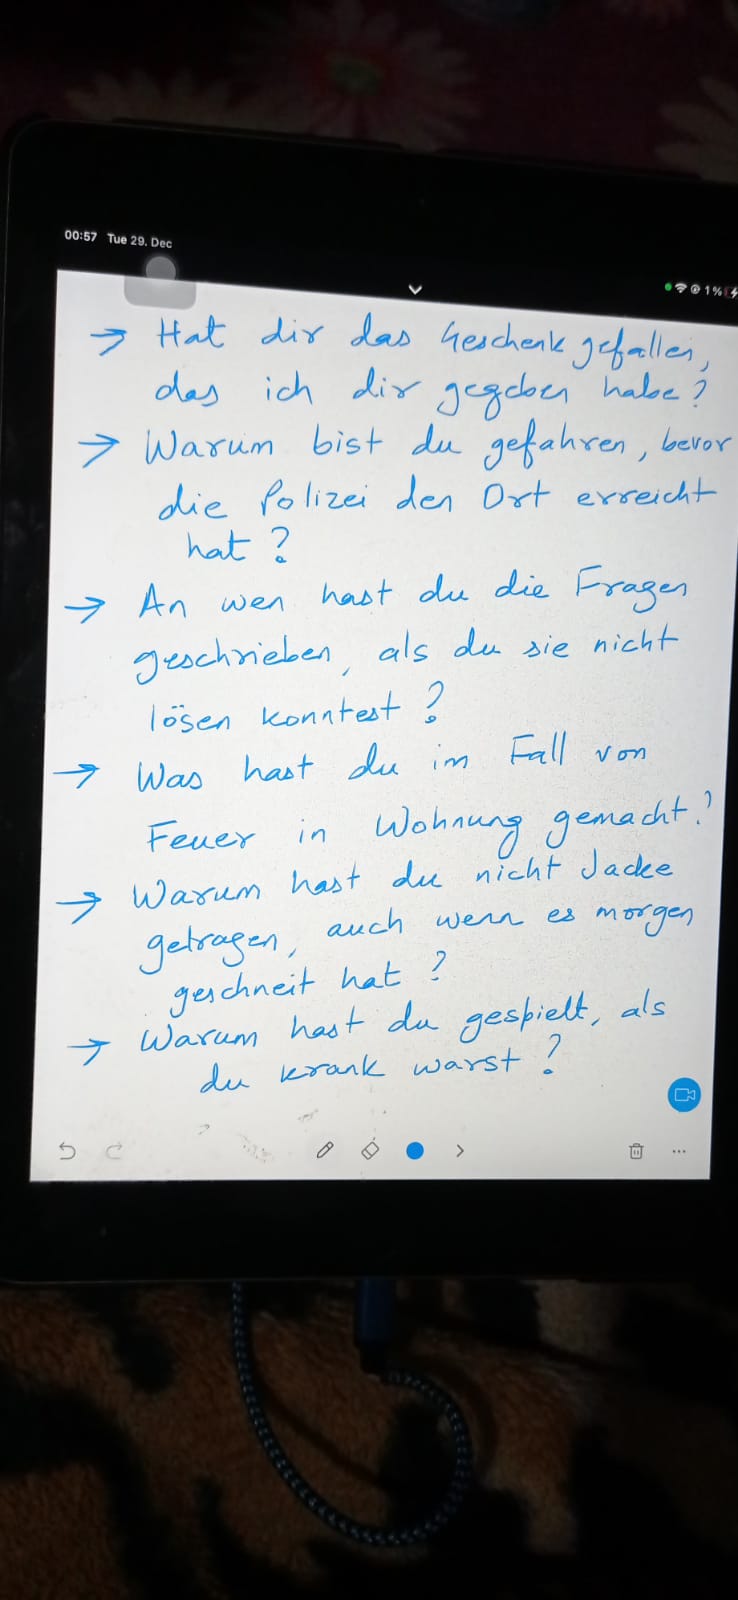 00:57 Tue 29. Dec
1%
→ Hat dir das Geschenk gefallen,
das ich dir gegeben habe?
→ Warum bist du gefahren, bevor
die Polizei den Ort erreicht
hat?
→ An wen hast du die Fragen
geschrieben, als du sie nicht
lösen konntest?
→ Was hast du im Fall von
Feuer in Wohnung gemacht?
→ Warum hast du nicht Jacke
getragen, auch wenn es morgen
geschneit hat?
→ Warum hast du gespielt, als
du krank warst?